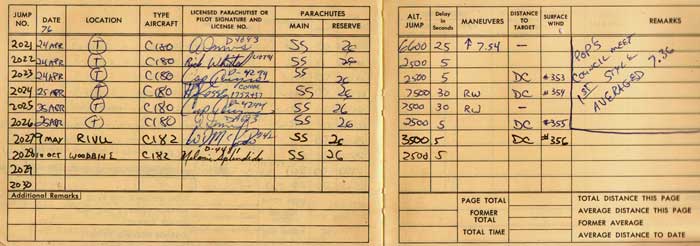 JUMP NO. DATE 76 LOCATION TYPE AIRCRAFT LICENSED PARACHUTIST or PILOT SIGNATURE and LICENSE NO. PARACHUTES MAIN RESERVE ALT. JUMP Delay in Seconds MANUEVERS DISTANCE TO TARGET SURFACE WIND REMARKS
2021 24 APR T C180 D-4643 SS 26 6600 25 ↑ 7.54 —
2022 24 APR T C180 SS 26 2500 5
2023 24 APR T C180 D-4294 SS 26 2500 5 DC #353
2024 25 APR T C180 SS 26 7500 30 RW DC #354
2025 25 APR T C180 D-4294 SS 26 7500 30 RW —
2026 25 APR T C180 D-4643 SS 26 2500 5 DC #355
2027 9 MAY RIVU C182 SS 26 3500 5 DC #356
2028 10 OCT WOODBINE C182 Melanie Splendido SS 26 2500 5
2029
2030
POP'S
COUNCIL MEET
1ST STYLE
AVERAGED 7.36
Additional Remarks
PAGE TOTAL TOTAL DISTANCE THIS PAGE
FORMER TOTAL AVERAGE DISTANCE THIS PAGE
FORMER AVERAGE
TOTAL TIME AVERAGE DISTANCE TO DATE